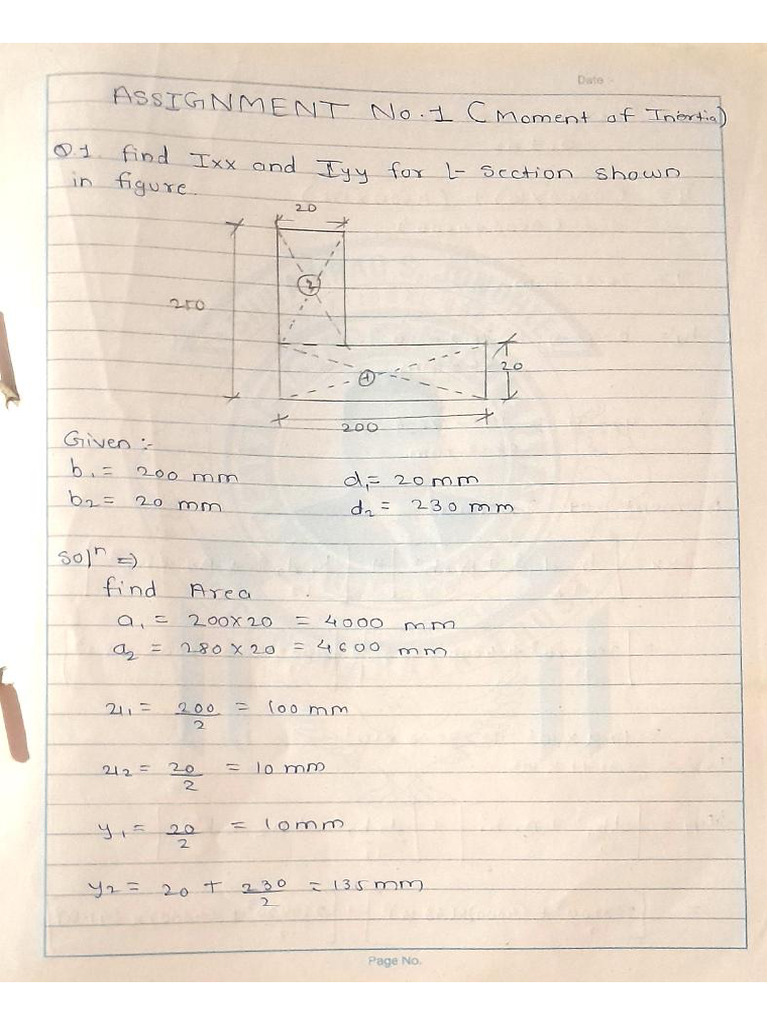 Date :-
ASSIGNMENT No.1 (Moment of Inertia)
Q.1. find Ixx and Iyy for L- Section shown
in figure.
20
2
250
20
1
200
Given :-
b₁ = 200 mm d₁= 20 mm
b₂ = 20 mm d₂ = 230 mm
Solⁿ =>
find Area
a₁ = 200×20 = 4000 mm
a₂ = 280×20 = 4600 mm
x₁ = 200/2 = 100 mm
x₂ = 20/2 = 10 mm
y₁ = 20/2 = 10mm
y₂ = 20 + 230/2 = 135 mm
Page No.